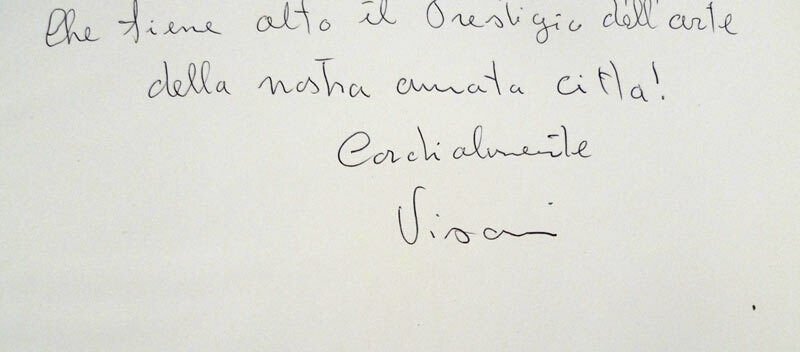 Che tiene alto il Prestigio dell'arte
della nostra amata città!
Cordialmente
Visani